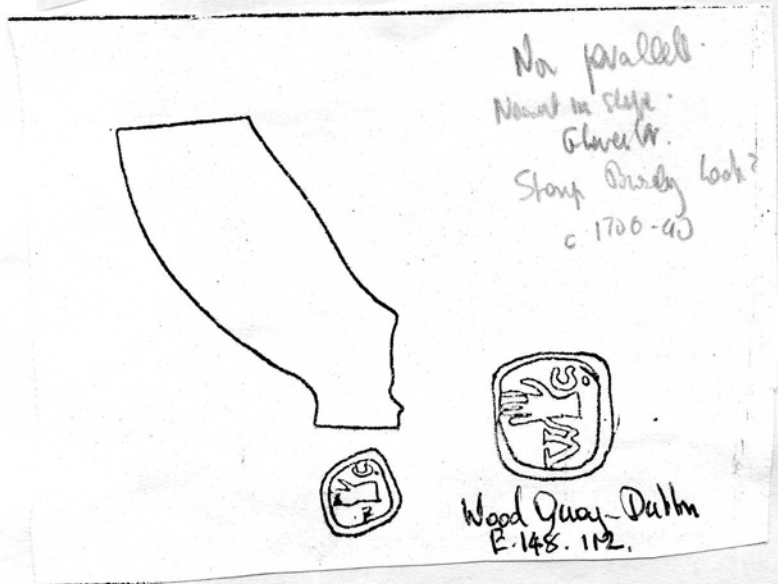 No parallels.
Nearest in shape.
Stamp Broseley
c 1700-40
Wood Quay - Dublin
E.148. 112.